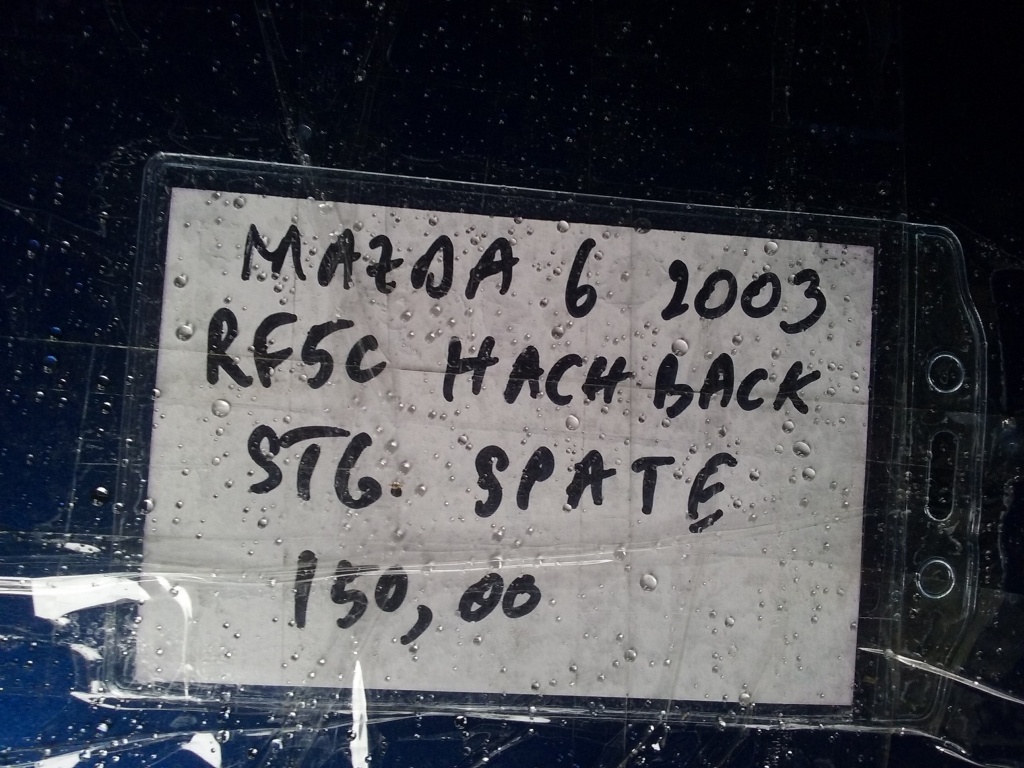 MAZDA 6 2003
RF5C HACHBACK
STG SPATE
150,00